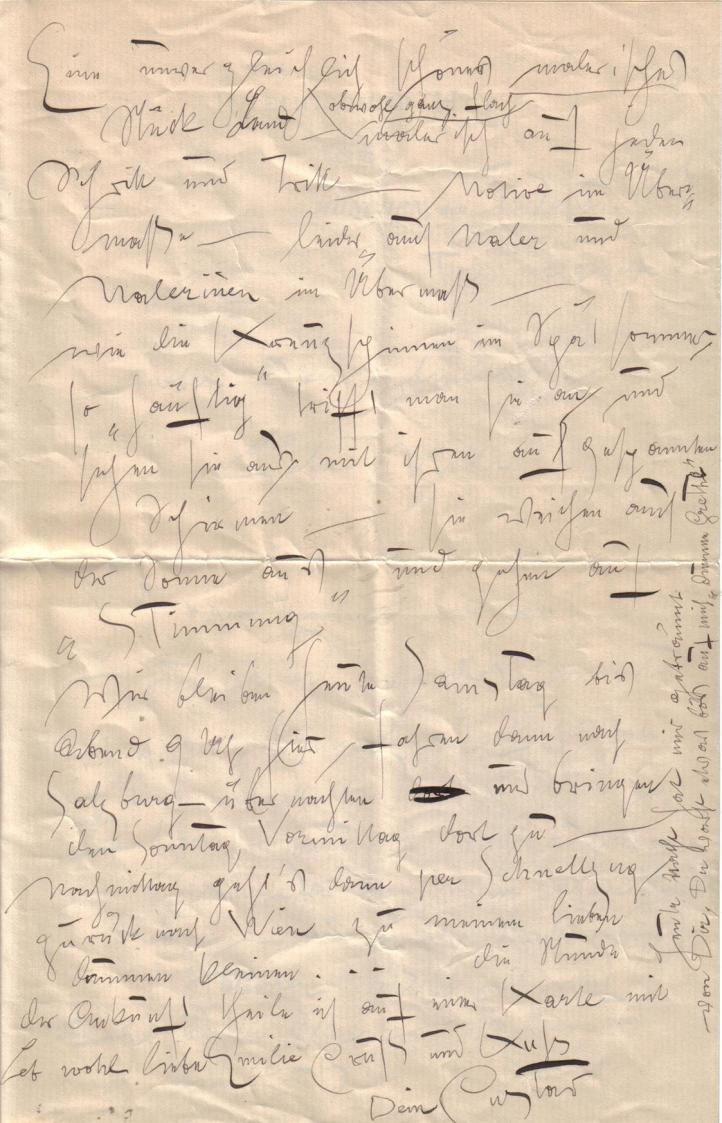 Eine unvergleichlich schönes malerisches
obwohl ganz flach
Stück Land — malerisch auf jeden
Schritt und Tritt — Motive im Über-
maße — leider auch Maler und
Malerinen im Übermaß —
wie die Kreuzspinnen im Spätsommer
so „häufig“ trifft man sie an und
sehen sie aus mit ihren aufgespannten
Schirmen — sie weichen auch
der Sonne aus und gehen auf
„Stimmung“
Wir bleiben heute Samstag bis
Abend 9 Uhr hier, fahren dann nach
Salzburg — übernachten und bringen
den Sonntag Vormittag dort zu —
Nachmittag geht's dann per Schnellzug
zurück nach Wien zu meinem lieben
dummen kleinen ... die Stunde
der Ankunft theile ich auf einer Karte mit
Leb wohl liebe Emilie Gruß und Kuß
Dein Gustav
Heute Nacht hat mir geträumt
— von Dir, Du warst etwas bös auf mich „dumme Grethl“